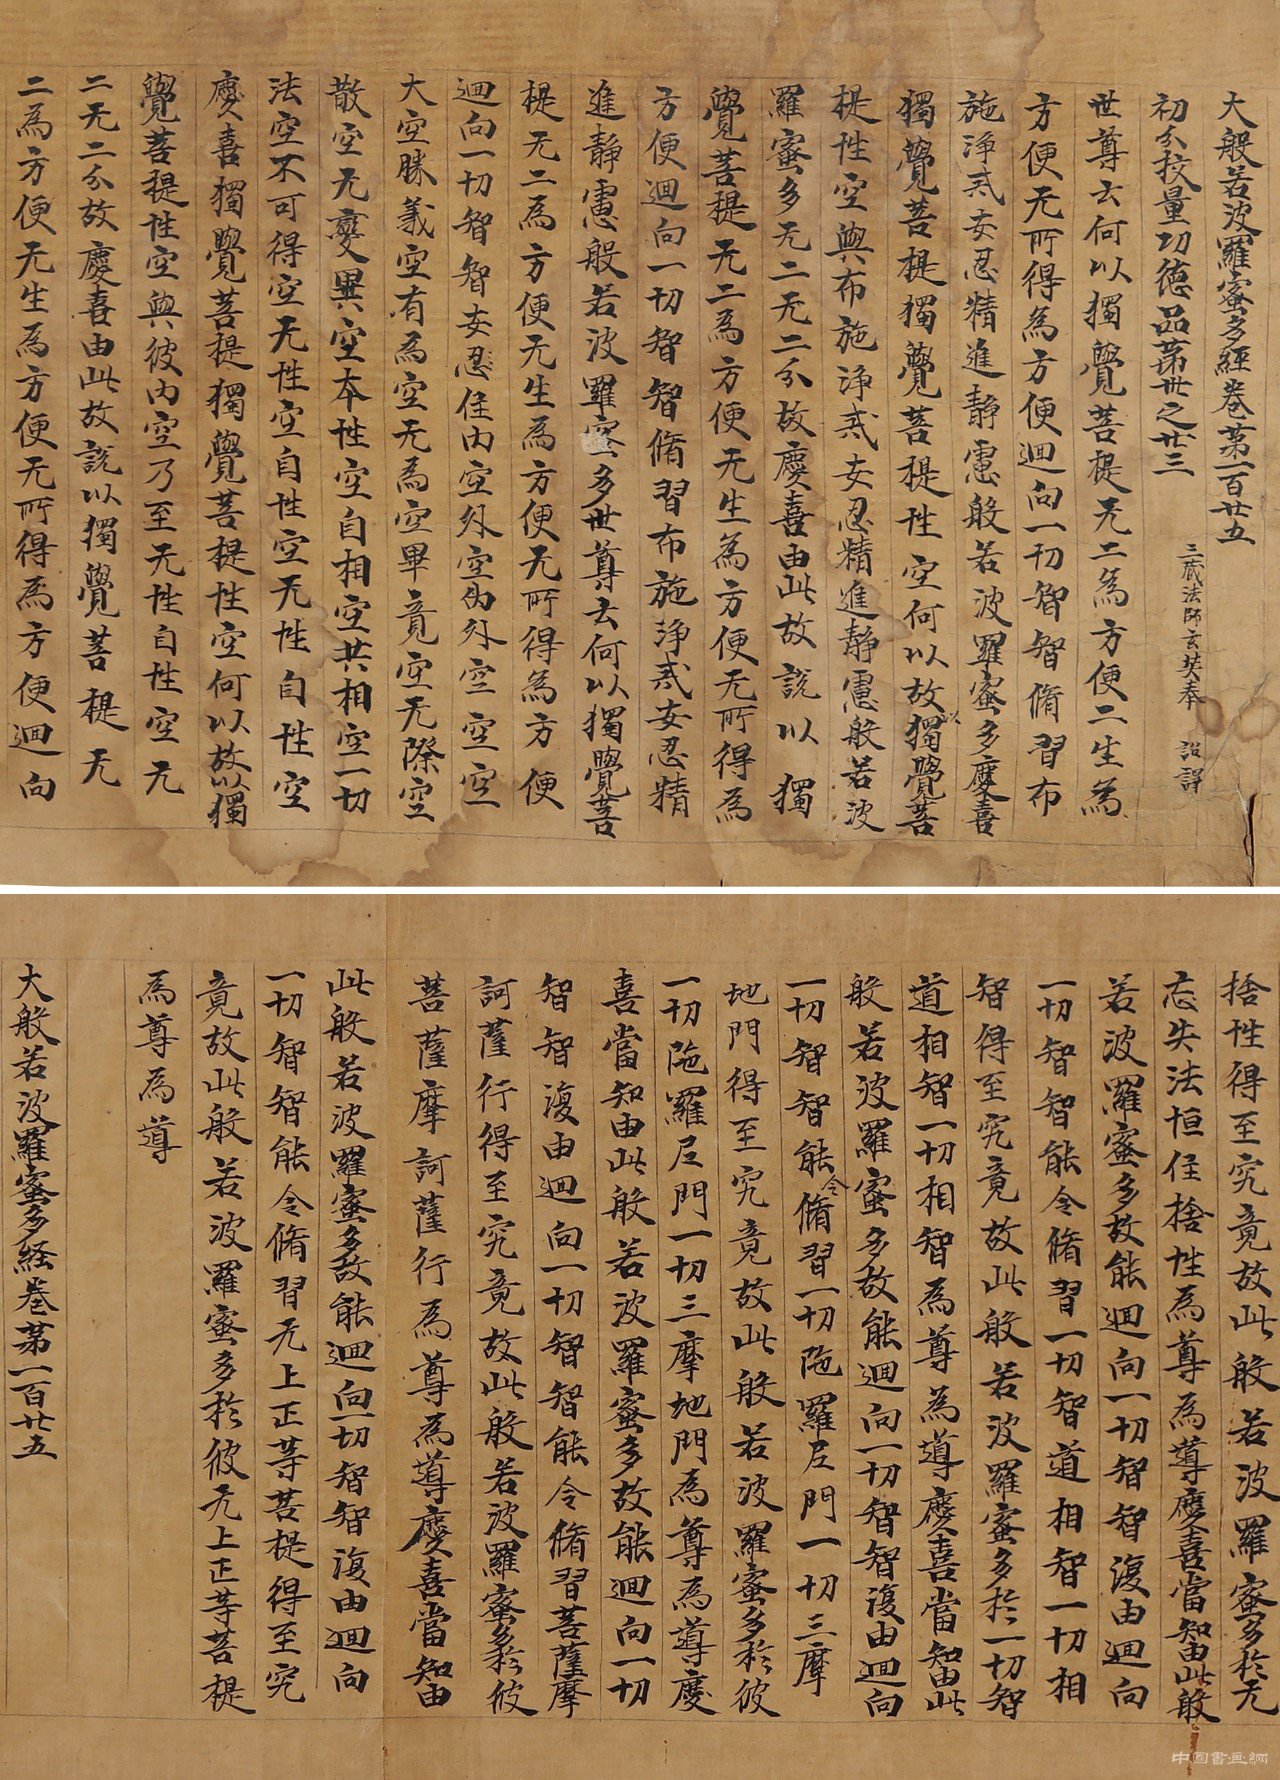 大般若波羅蜜多經卷第一百廿五
初分挍量功德品第卅之廿三
三藏法師玄奘奉 詔譯
世尊云何以獨覺菩提无二為方便二生為
方便无所得為方便迴向一切智智脩習布
施淨戒安忍精進靜慮般若波羅蜜多慶喜
獨覺菩提獨覺菩提性空何以故獨覺菩
以
提性空與布施淨戒安忍精進靜慮般若波
羅蜜多无二无二分故慶喜由此故說以獨
覺菩提无二為方便无生為方便无所得為
方便迴向一切智智脩習布施淨戒安忍精
進靜慮般若波羅蜜多世尊云何以獨覺菩
提无二為方便无生為方便无所得為方便
迴向一切智智安忍住內空外空內外空空空
大空勝義空有為空无為空畢竟空无際空
散空无變異空本性空自相空共相空一切
法空不可得空无性空自性空无性自性空
慶喜獨覺菩提獨覺菩提性空何以故以獨
覺菩提性空與彼內空乃至无性自性空无
二无二分故慶喜由此故說以獨覺菩提无
二為方便无生為方便无所得為方便迴向
捨性得至究竟故此般若波羅蜜多於无
忘失法恒住捨性為尊為導慶喜當知由此般
若波羅蜜多故能迴向一切智智復由迴向
一切智智能令脩習一切智道相智一切相
智得至究竟故此般若波羅蜜多於一切智
道相智一切相智為尊為導慶喜當知由此
般若波羅蜜多故能迴向一切智智復由迴向
一切智智能脩習一切陁羅尼門一切三摩
令
地門得至究竟故此般若波羅蜜多於彼
一切陁羅尼門一切三摩地門為尊為導慶
喜當知由此般若波羅蜜多故能迴向一切
智智復由迴向一切智智能令脩習菩薩摩
訶薩行得至究竟故此般若波羅蜜多於彼
菩薩摩訶薩行為尊為導慶喜當知由
此般若波羅蜜多故能迴向一切智智復由迴向
一切智智能令脩習无上正等菩提得至究
竟故此般若波羅蜜多於彼无上正等菩提
為尊為導
大般若波羅蜜多經卷第一百廿五
中国書画網